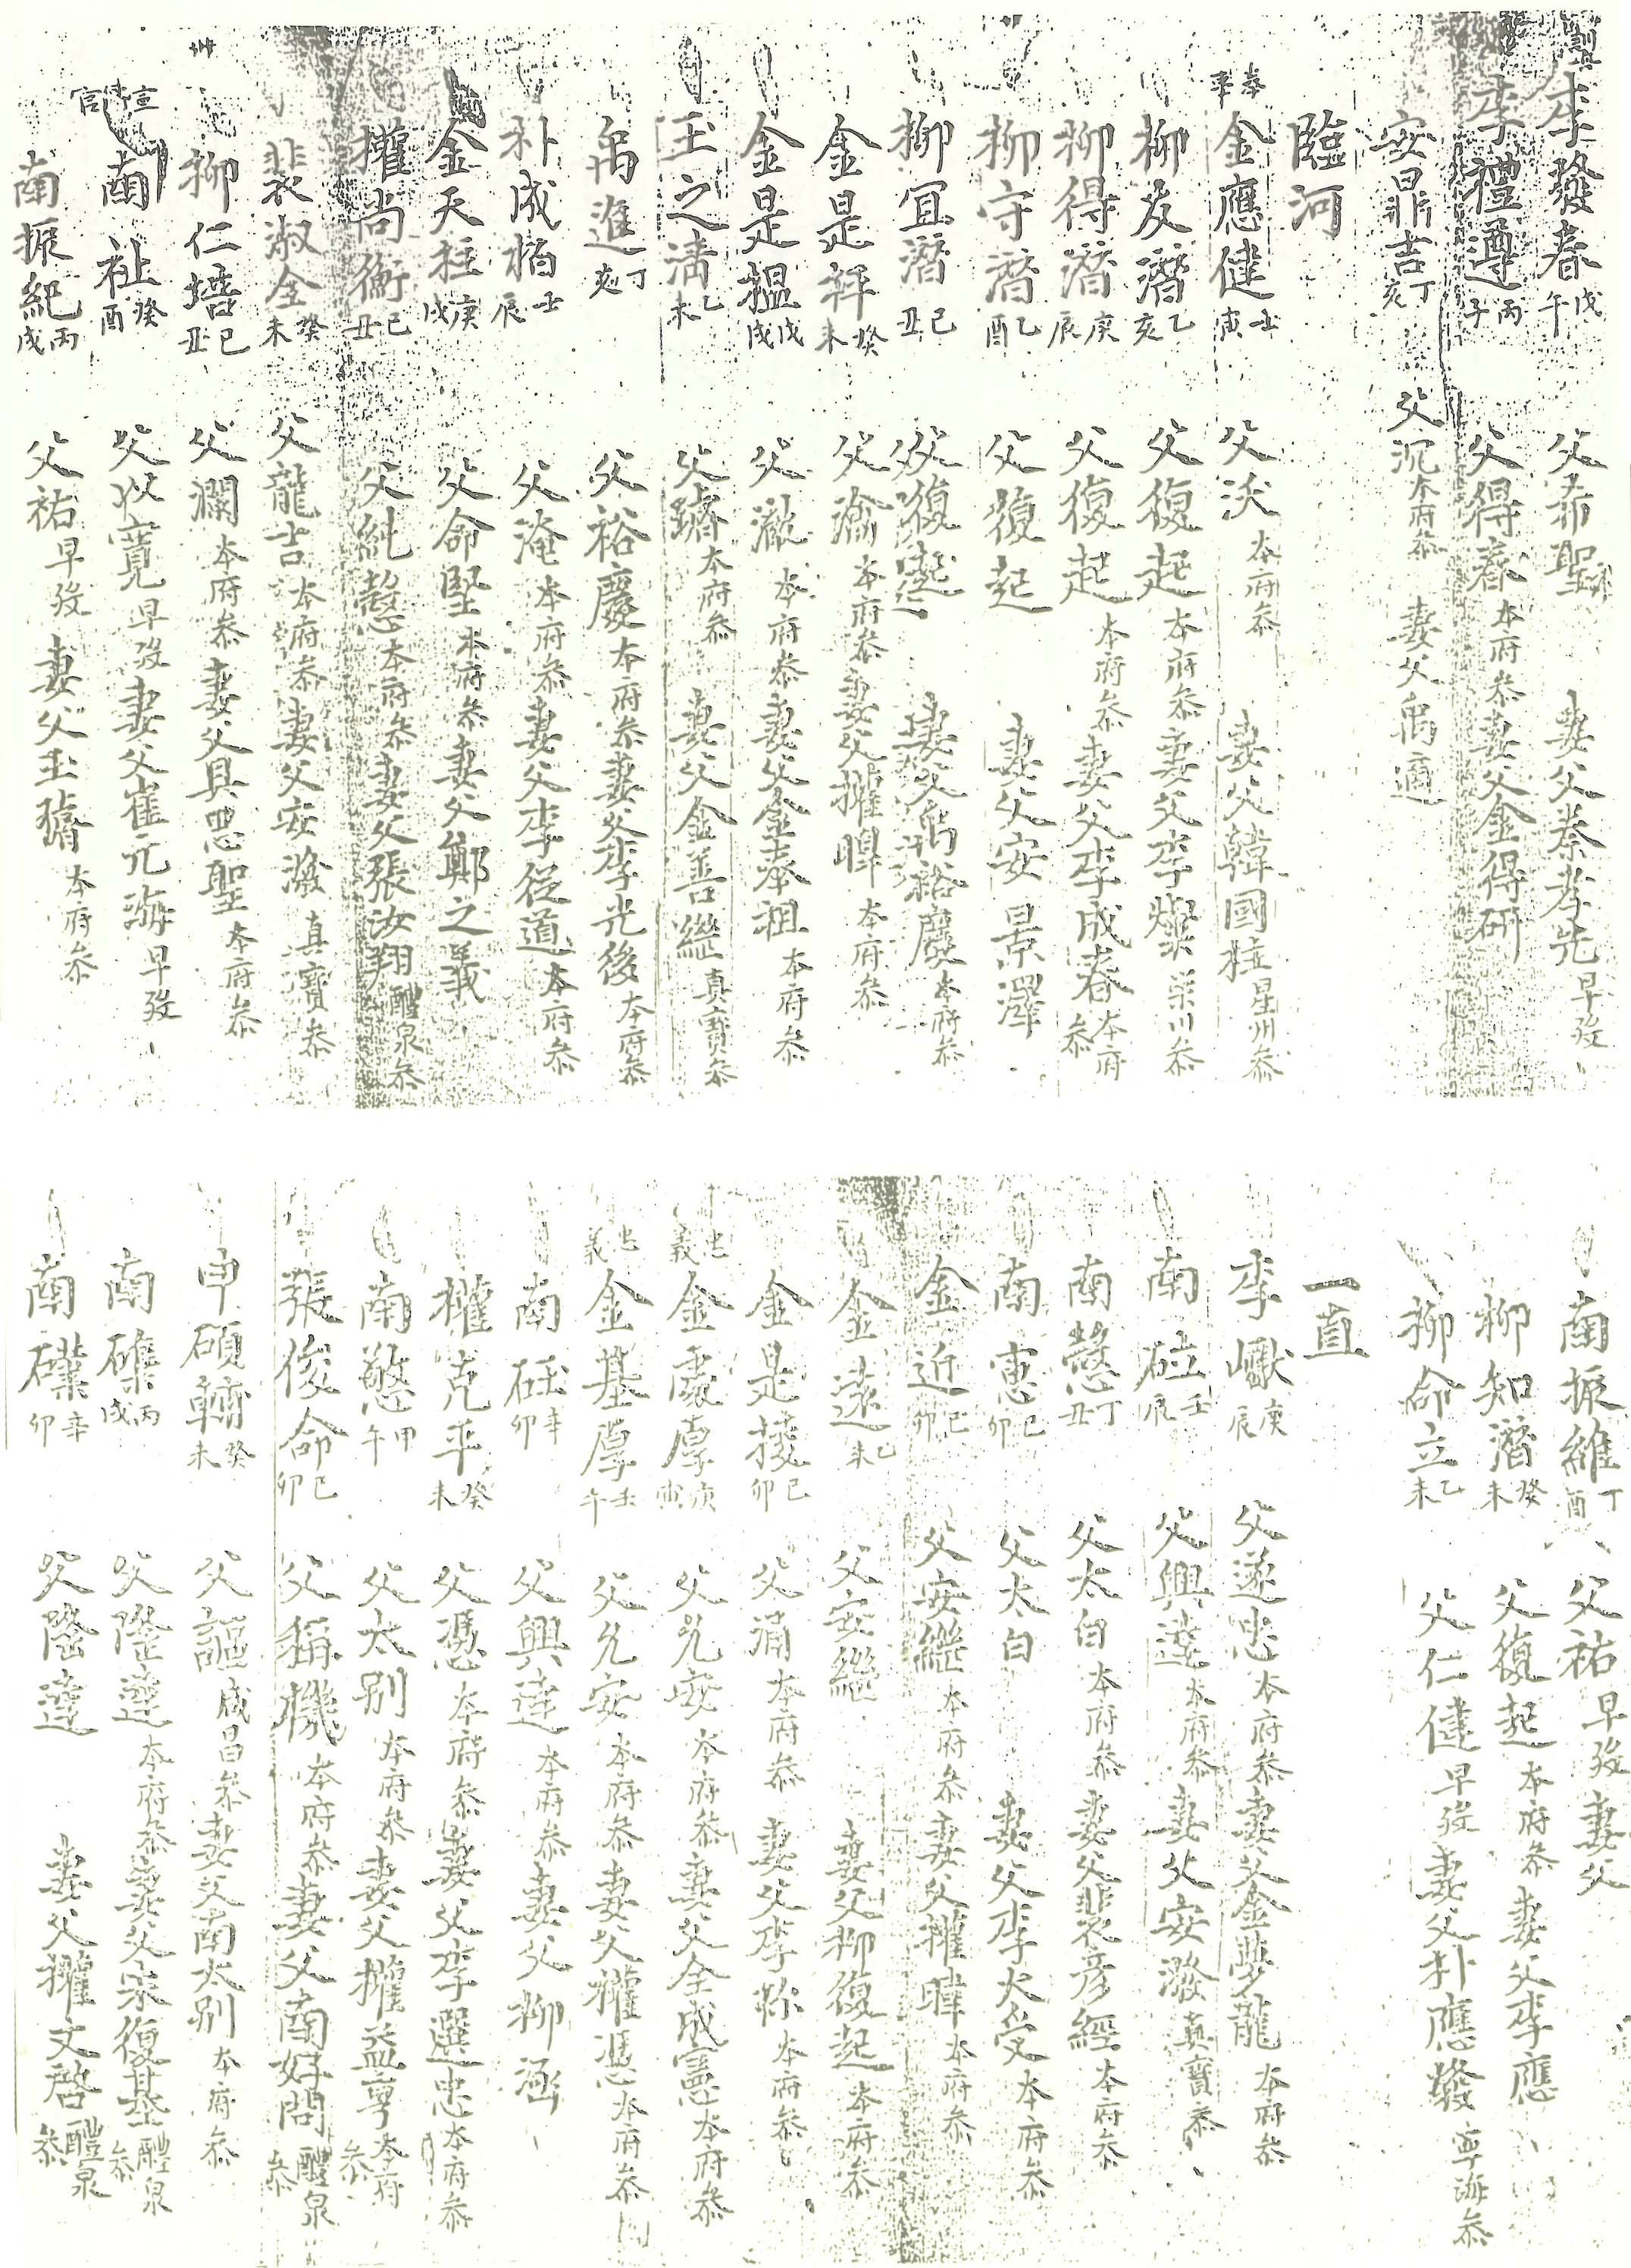 李發春 戊午 父希聖 妻父蔡孝先 早歿
李禮遵 丙子 父得春 本府叅 妻父金得硏
安鼎吉 丁亥 父沉 本府叅 妻父禹適
臨河
奉事 金應健 壬寅 父沃 本府叅 妻父韓國柱 星州叅
柳友潛 乙亥 父復起 本府叅 妻父李燦 榮川叅
柳得潛 庚辰 父復起 本府叅 妻父李成春 本府叅
柳守潛 乙酉 父復起 妻父安景濯
柳宜潛 己丑 父復起 妻父禹裕慶 本府叅
金是 癸未 父瀹 本府叅 妻父權暐 本府叅
金是榲 戊戌 父澈 本府叅 妻父金奉祖 本府叅
王之淸 乙未 父 本府叅 妻父金善繼 眞寶叅
禹進 丁亥 父裕慶 本府叅 妻父李光後 本府叅
朴成栢 壬辰 父淹 本府叅 妻父李從道 本府叅
金天柱 庚戌 父命堅 本府叅 妻父鄭之義
權尚衡 己丑 父純慤 本府叅 妻父張汝翔 醴泉叅
裴淑全 癸未 父龍吉 本府叅 妻父安 眞寶叅
柳仁培 己丑 父瀾 本府叅 妻父具思聖 本府叅
宣官 南祉 癸酉 父以寬 早歿 妻父崔元海 早歿
南振紀 丙戌 父祐 早歿 妻父王 本府叅
南振維 丁酉 父祐 早歿 妻父
柳知潛 癸未 父復起 本府叅 妻父李應
柳命立 乙未 父仁健 早歿 妻父朴應發 寧海叅
一直
李巘 庚辰 父遂忠 本府叅 妻父金夢龍 本府叅
南 壬辰 父興達 本府叅 妻父安潑 眞寶叅
南慤 丁丑 父太白 本府叅 妻父裵彦經 本府叅
南憲 己卯 父太白 妻父李火受 本府叅
金近 己卯 父安繼 本府叅 妻父權暐 本府叅
金遠 乙未 父安繼 妻父柳復起 本府叅
金是 己卯 父涌 本府叅 妻父李 本府叅
忠義 金處厚 庚寅 父兌安 本府叅 妻父全成憲 本府叅
忠義 金基厚 壬午 父兌安 本府叅 妻父權憑 本府叅
南 辛卯 父興達 本府叅 妻父柳涵
權克平 癸未 父憑 本府叅 妻父李選忠 本府叅
南憼 甲午 父太別 本府叅 妻父權益亨 本府叅
張俊命 己卯 父稱機 本府叅 妻父南好問 醴泉叅
申碩 癸未 父謳 咸昌叅 妻父南太別 本府叅
南磼 丙戌 父隆達 本府叅 妻父宋復基 醴泉叅
南礏 辛卯 父隆達 妻父權文啓 醴泉叅